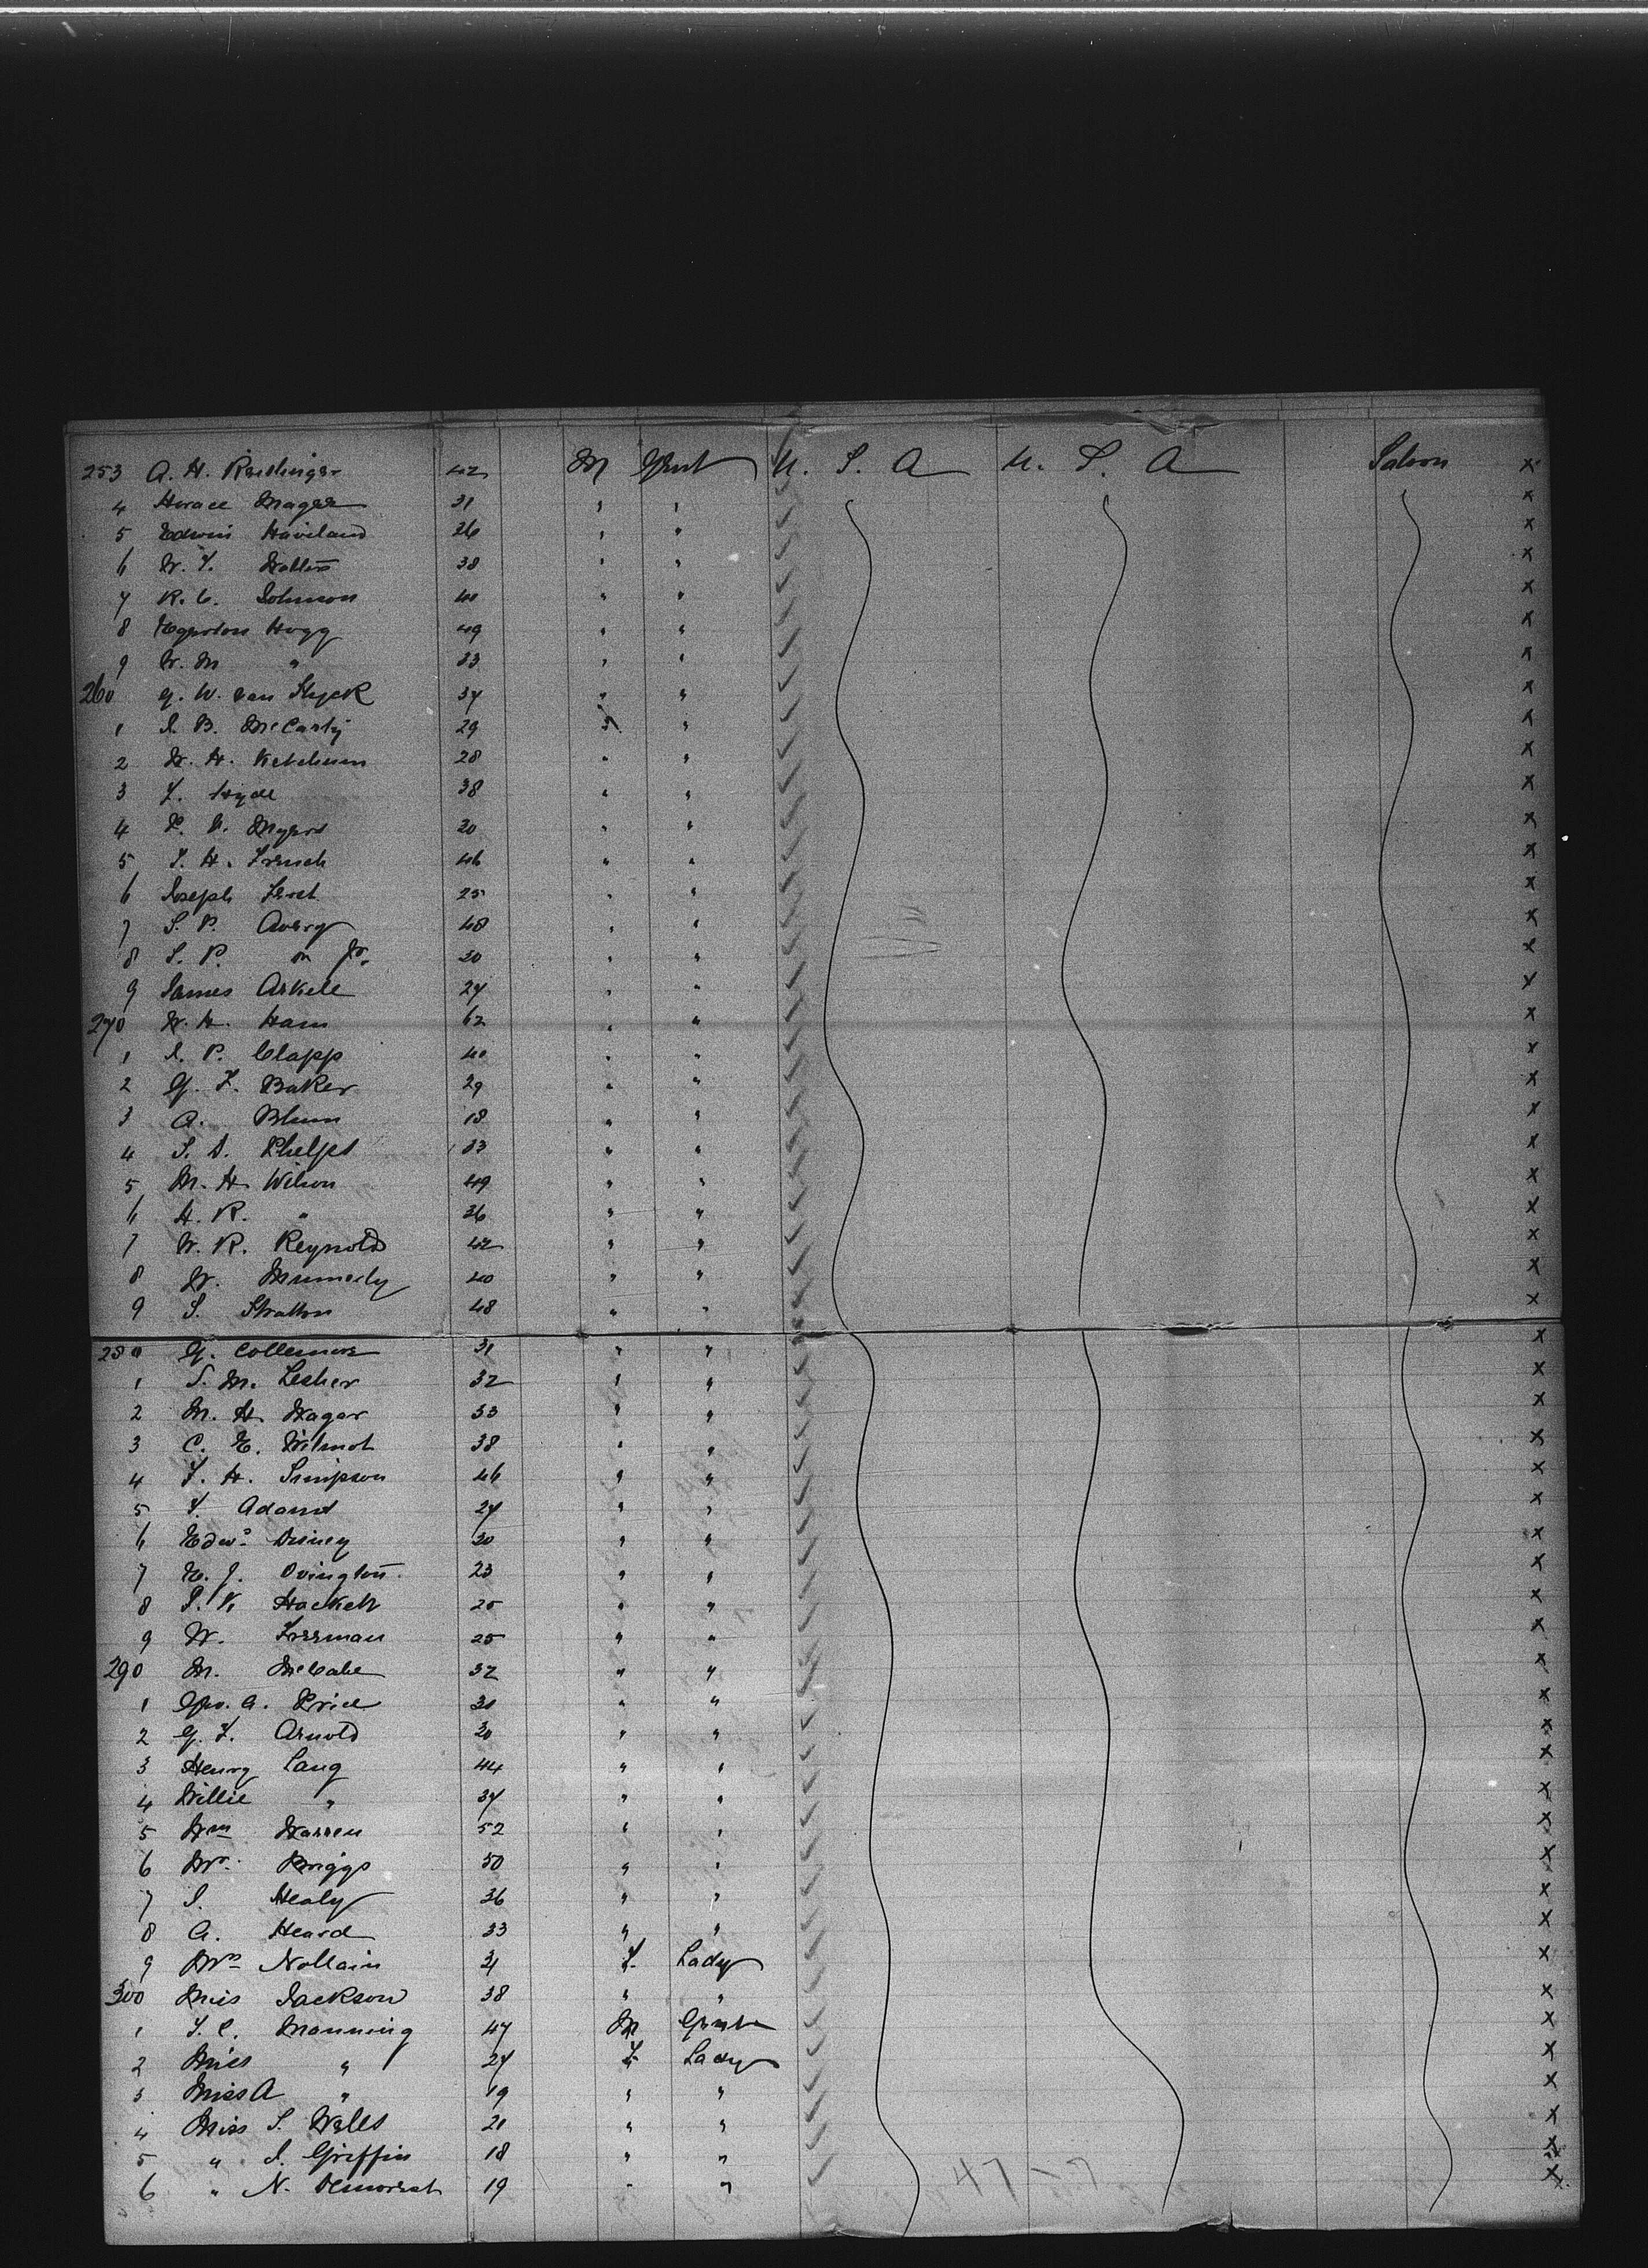 253 A. H. 42 M Gent U. S. A U. S. A Saloon x
4 Horace Mager 31 " " x
5 Edwin Haviland 26 " " x
6 W. 38 " " x
7 R. C. Johnson " " x
8 Egerton Hogg 49 " " x
9 W. M " 33 " " x
260 G. W. van Slyck 37 " " x
1 J. B. McCarty 29 " " x
2 W. H. Ketchum 28 " " x
3 Hyde 38 " " x
4 Myers 30 " " x
5 French 46 " " x
6 Joseph 25 " " x
7 S. P. Avery 48 " " x
8 S. P. " Jr. 20 " " x
9 James Arkell 27 " " x
270 W. H. Ham 62 " " x
1 J. P. Clapp 40 " " x
2 G. F. Baker 29 " " x
3 A. Blum 18 " " x
4 Phelps 33 " " x
5 M. H. Wilson 49 " " x
6 H. R. " 36 " " x
7 W. R. Reynolds 42 " " x
8 W. 40 " " x
9 S. Stratton 48 " " x
280 G. Collemore 31 " " x
1 S. M. Lesher 32 " " x
2 M. H. Wagar 33 " " x
3 C. E. Wilmot 38 " " x
4 Simpson 46 " " x
5 Adams 27 " " x
6 Edwd. Disney 30 " " x
7 E. J. Ovington 23 " " x
8 Hackett 25 " " x
9 W. Freeman 25 " " x
290 M. McCabe 32 " " x
1 Geo. A. Price 30 " " x
2 Arnold 30 " " x
3 Henry Lang 44 " " x
4 Willie " 37 " " x
5 Wm Warren 52 " " x
6 Mr. Briggs 50 " " x
7 J. Healy 36 " " x
8 A. Heard 33 " " x
9 Mrs Nollain 31 F. Lady x
300 Miss Jackson 38 " " x
1 Manning 47 M Gent x
2 Miss " 27 F. Lady x
3 Miss A " 19 " " x
4 Miss S. Wells 21 " " x
5 " J. Griffin 18 " " x
6 " N. Demorest 19 " " x